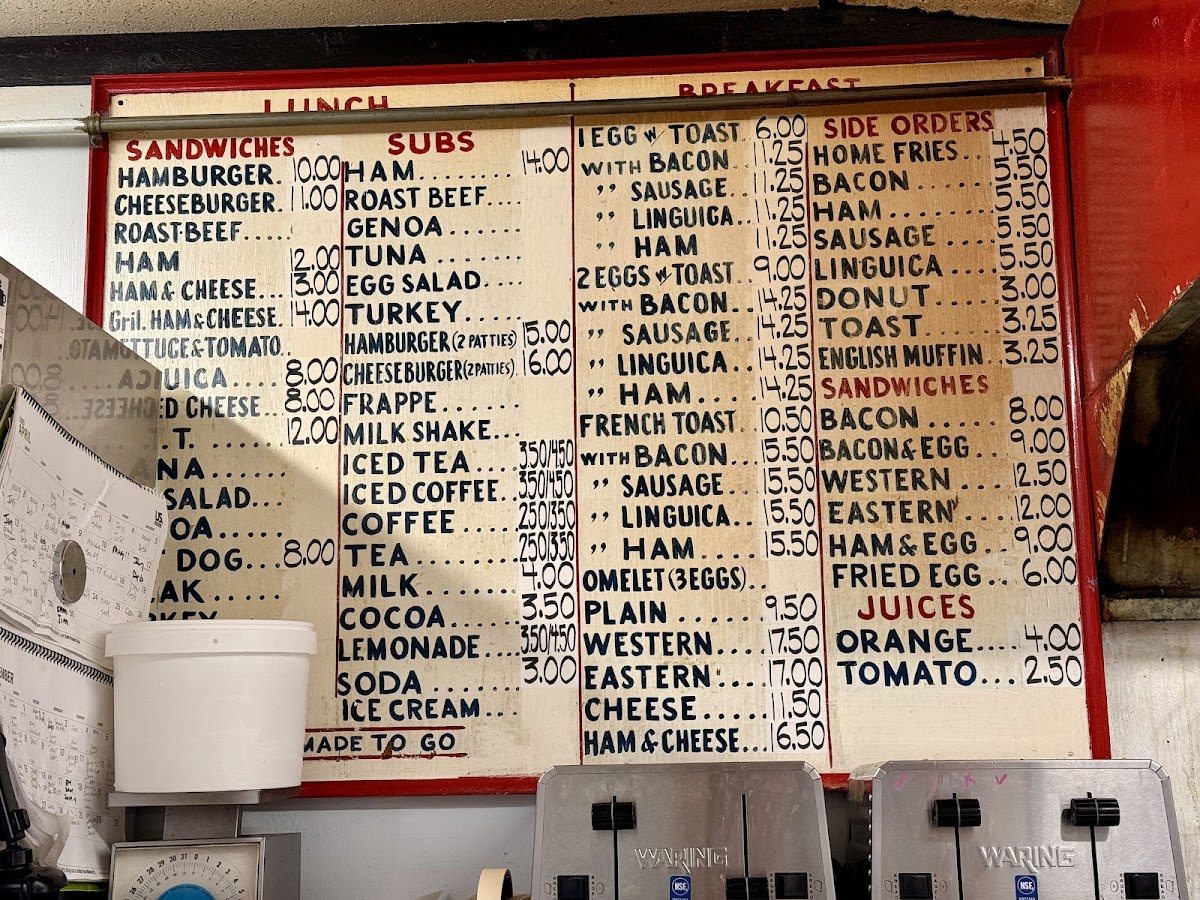 LUNCH
SANDWICHES
HAMBURGER. 10.00
CHEESEBURGER. 11.00
ROAST-BEEF.....
HAM 12.00
HAM & CHEESE... 13.00
Gril. HAM & CHEESE. 14.00
TTUCE & TOMATO..
UICA.... 8.00
ED CHEESE... 8.00
.T. ...... 12.00
NA......
SALAD...
OA.....
DOG.... 8.00
AK
SUBS
HAM........ 14.00
ROAST BEEF....
GENOA.......
TUNA........
EGG SALAD....
TURKEY......
HAMBURGER (2 PATTIES) 15.00
CHEESEBURGER (2 PATTIES). 16.00
FRAPPE......
MILK SHAKE...
ICED TEA.... 3.50/4.50
ICED COFFEE.. 3.50/4.50
COFFEE..... 2.50/3.50
TEA........ 2.50/3.50
MILK........ 4.00
COCOA...... 3.50
LEMONADE.... 3.50/4.50
SODA........ 3.00
ICE CREAM...
MADE TO GO
BREAKFAST
1 EGG w/ TOAST. 6.00
WITH BACON... 11.25
" SAUSAGE.. 11.25
" LINGUICA.. 11.25
" HAM 11.25
2 EGGS w/ TOAST.. 9.00
WITH BACON... 14.25
" SAUSAGE... 14.25
" LINGUICA... 14.25
" HAM.... 14.25
FRENCH TOAST. 10.50
WITH BACON... 15.50
" SAUSAGE.. 15.50
" LINGUICA.. 15.50
" HAM.... 15.50
OMELET (3 EGGS)..
PLAIN....... 9.50
WESTERN.... 17.50
EASTERN.... 17.00
CHEESE..... 11.50
HAM & CHEESE... 16.50
SIDE ORDERS
HOME FRIES... 4.50
BACON...... 5.50
HAM........ 5.50
SAUSAGE.... 5.50
LINGUICA.... 5.50
DONUT..... 3.00
TOAST...... 3.25
ENGLISH MUFFIN.. 3.25
SANDWICHES
BACON 8.00
BACON & EGG.. 9.00
WESTERN.... 12.50
EASTERN.... 12.00
HAM & EGG... 9.00
FRIED EGG.. 6.00
JUICES
ORANGE.... 4.00
TOMATO... 2.50
APRIL
US
WARING
WARING
NSF
NSF